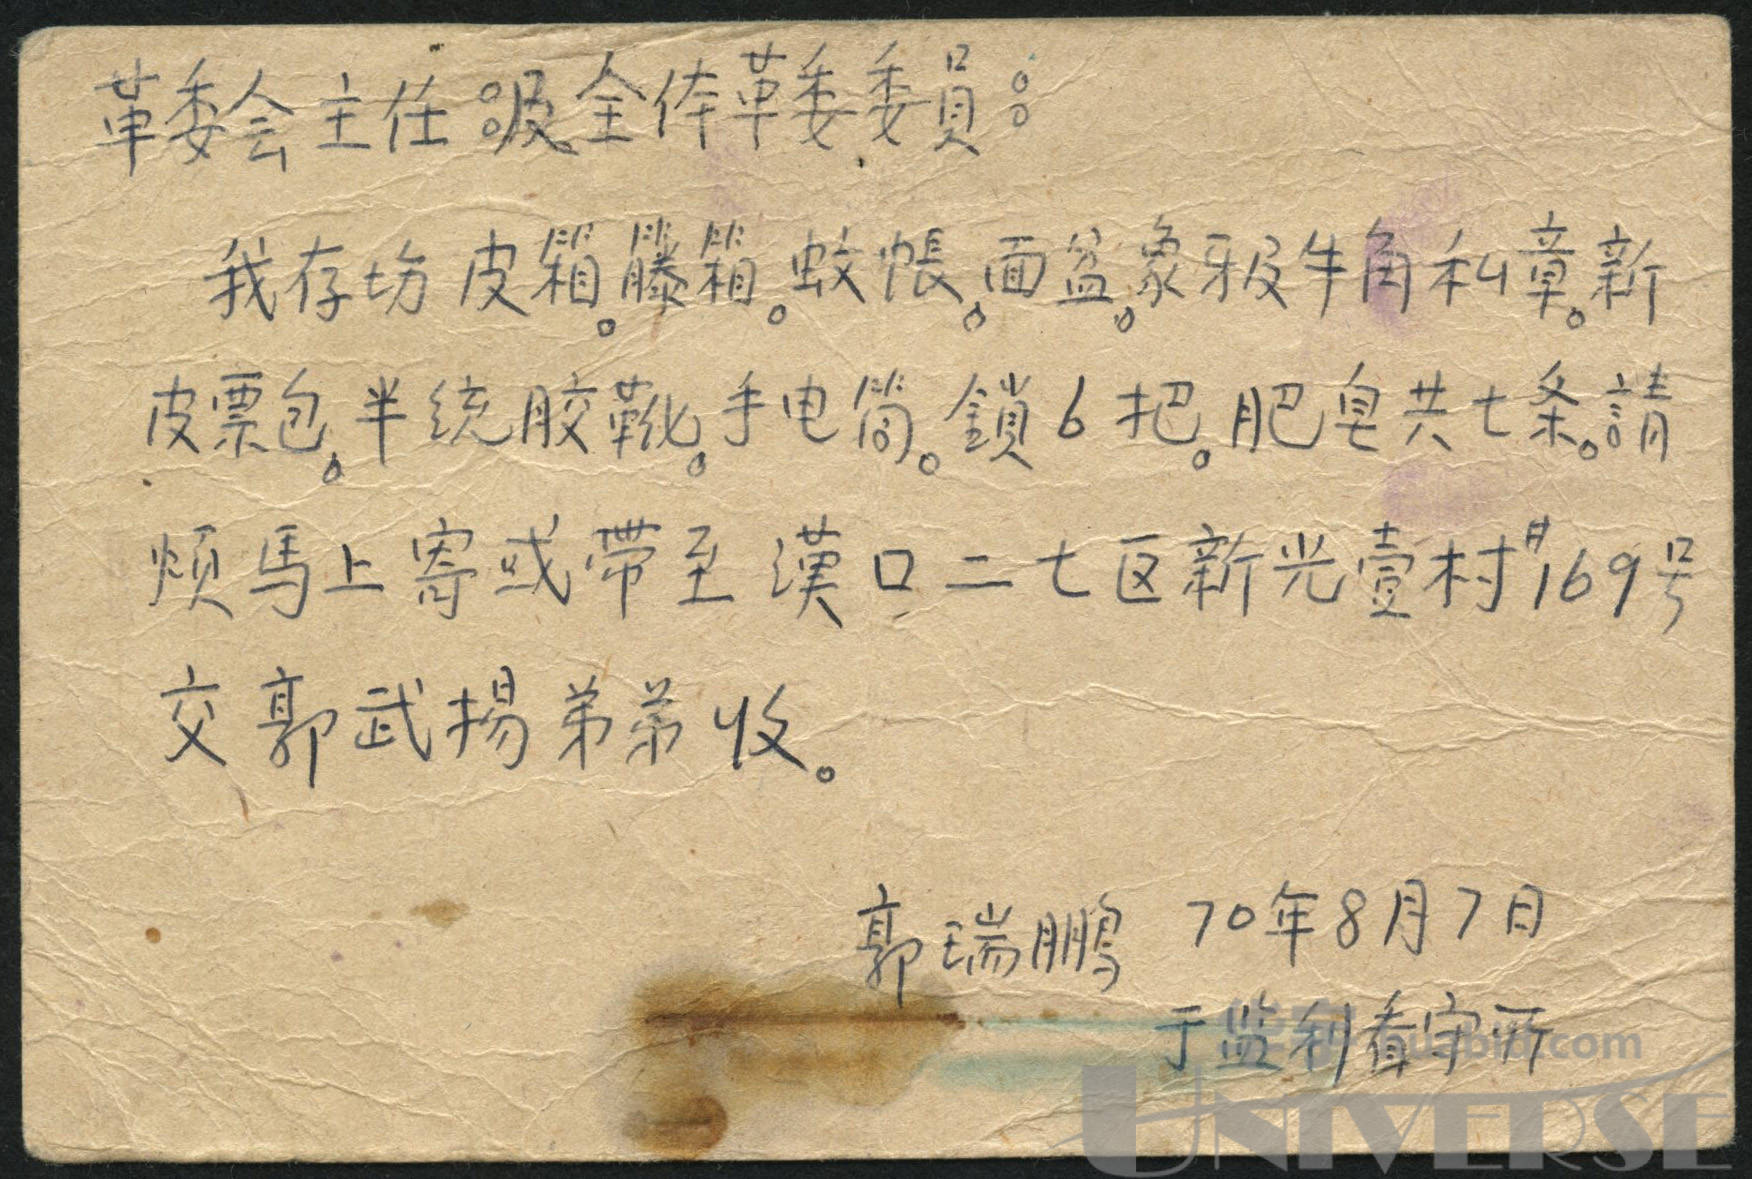 革委会主任：及全体革委委員：
我存坊皮箱。籐箱。蚊帳。面盆。象牙及牛角私章。新
皮票包。半统胶靴。手电筒。鎖6把。肥皂共七条。請
烦馬上寄或带至漢口二七区新光壹村付169号
交郭武揚弟弟收。
郭瑞鹏 70年8月7日
于监利看守所
UNIVERSE